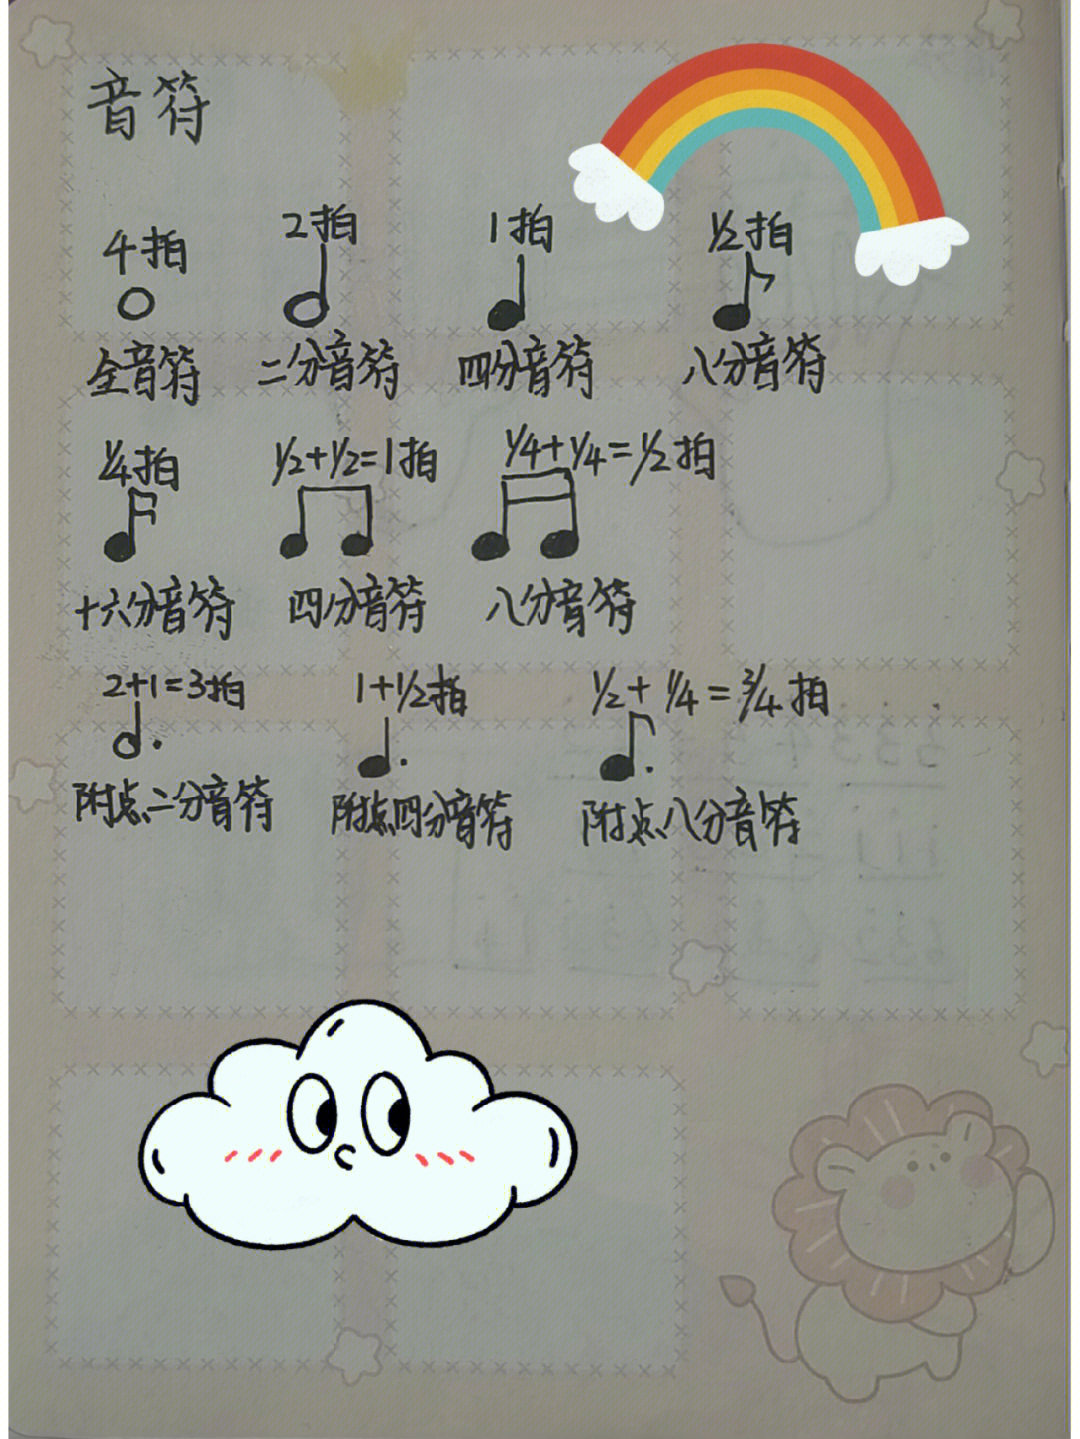 音符
4拍 2拍 1拍 1/2拍
全音符 二分音符 四分音符 八分音符
1/4拍 1/2+1/2=1拍 1/4+1/4=1/2拍
十六分音符 四分音符 八分音符
2+1=3拍 1+1/2拍 1/2+1/4=3/4拍
附点二分音符 附点四分音符 附点八分音符